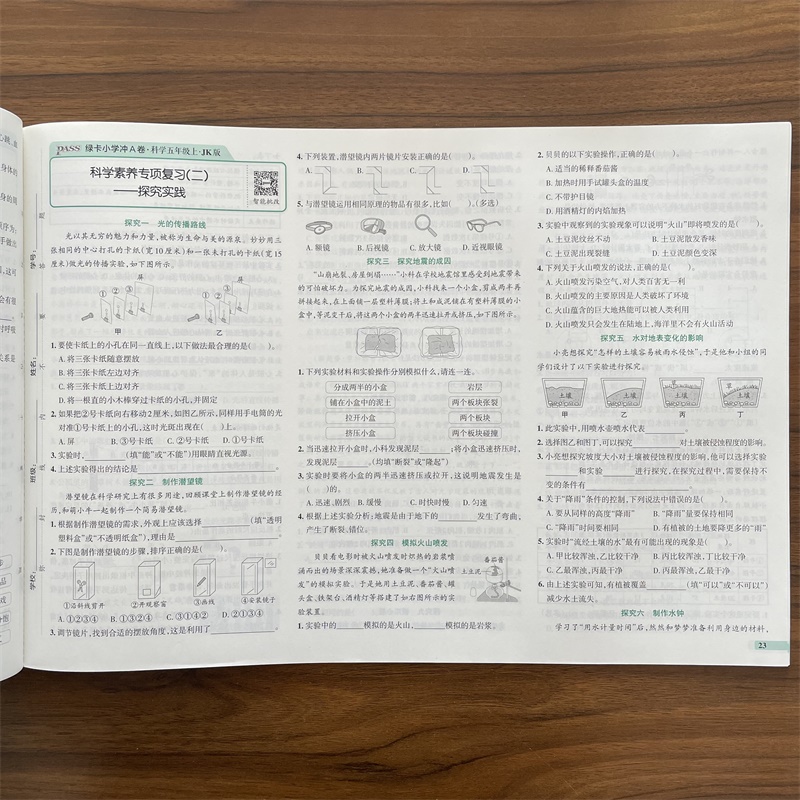 PASS 绿卡小学冲A卷·科学五年级上·JK版
科学素养专项复习(二)
——探究实践
智能批改
学号:
姓名:
班级:
学校:
探究一 光的传播路线
光以其无穷的魅力和力量,被称为生命与美的源泉。妙妙用三
张相同的中心打孔的卡纸(宽10厘米)和一张未打孔的卡纸(宽15
厘米)做光的传播实验,如下图所示。
屏
屏
① ② ③
① ② ③
甲
乙
1. 要使卡纸上的小孔在同一直线上,以下做法最合理的是( )。
A. 将三张卡纸随意摆放
B. 将三张卡纸左边对齐
C. 将三张卡纸上边对齐
D. 将一根细长的小木棒穿过卡纸的小孔,并固定
2. 如果把②号卡纸向右移动2厘米,如图乙所示,同样用手电筒的光
对准①号卡纸上的小孔,这时光斑出现在( )上。
A. 屏 B. ③号卡纸 C. ②号卡纸 D. ①号卡纸
3. 实验时,______(填“能”或“不能”)用眼睛直视光源。
4. 上述实验得出的结论是______。
探究二 制作潜望镜
潜望镜在科学研究上有很多用途,回顾课堂上制作潜望镜的经
历,和萌小牛一起制作一个简易潜望镜。
1. 根据制作潜望镜的需求,外观上应该选择______(填“透明
塑料盒”或“不透明纸盒”),理由是______。
2. 下图是制作潜望镜的步骤,排序正确的是( )。
①沿斜线剪开 ②开观察窗 ③画线 ④安装镜子
A. ①②③④ B. ①③②④ C. ③①④② D. ②①③④
3. 调节镜片,找到合适的摆放角度,这是利用了______。
4. 下列装置,潜望镜内两片镜片安装正确的是( )。
A. B. C. D.
5. 与潜望镜运用相同原理的物品有很多,比如( )。(多选)
A. 额镜 B. 后视镜 C. 放大镜 D. 近视眼镜
探究三 探究地震的成因
“山崩地裂、房屋倒塌……”小科在学校地震馆里感受到地震带来
的可怕破坏力。为了探究地震的成因,小科找来一个小盒,剪成两半再
拼接起来,在上面铺一层塑料薄膜;将土和成泥铺在有塑料薄膜的小
盒中,等泥变干后,将这两个小盒的两半迅速拉开或挤压,如下图所示。
1. 下列实验材料和实验操作分别模拟什么,请连一连。
分成两半的小盒 岩层
铺在小盒中的泥土 两个板块张裂
拉开小盒 两个板块
挤压小盒 两个板块碰撞
2. 当迅速拉开小盒时,小科发现泥层______;将小盒迅速挤压时,
发现泥层______。(均填“断裂”或“隆起”)
3. 实验时要将小盒的两半迅速挤压或拉开,这说明地震发生是
( )的。
A. 迅速、剧烈 B. 缓慢 C. 时快时慢 D. 匀速
4. 根据上述实验分析:地震是由于地下的______发生了弯曲,
产生了断裂、错位。
探究四 模拟火山喷发
贝贝看电影时被火山喷发时炽热的岩浆喷
涌而出的场景深深震撼,她准备做一个“火山喷
发”的模拟实验。于是她用土豆泥、番茄酱、罐
头盒、铁架台、酒精灯等搭建了如右图所示的实
验装置。
番茄酱
土豆泥
1. 实验中的______模拟的是火山,______模拟的是岩浆。
2. 贝贝的以下实验操作,正确的是( )。
A. 适当的稀释番茄酱
B. 加热时用手试罐头盒的温度
C. 不带护目镜
D. 用酒精灯的内焰加热
3. 实验中观察到的实验现象可以说明“火山”即将喷发的是( )。
A. 土豆泥纹丝不动 B. 土豆泥散发香味
C. 土豆泥出现裂缝 D. 土豆泥颜色变深
4. 下列关于火山喷发的说法,正确的是( )。
A. 火山喷发污染空气,对人类百害无一利
B. 火山喷发的主要原因是人类破坏了环境
C. 火山蕴含的巨大地热能可以被人类利用
D. 火山喷发只会发生在陆地上,海洋里不会有火山活动
探究五 水对地表变化的影响
小亮想探究“怎样的土壤容易被雨水侵蚀”,于是他和小组的同
学们设计了以下实验进行探究。
土壤 土壤 土壤 土壤
甲 乙 丙 丁
1. 此实验中,用喷水壶喷水代表______。
2. 选择图乙和图丁,可以探究______对土壤被侵蚀程度的影响。
3. 小亮想探究坡度大小对土壤被侵蚀程度的影响,他可以选择实验
______和实验______进行探究,在探究过程中,需要保持不
变的条件有______。
4. 关于“降雨”条件的控制,下列说法中错误的是( )。
A. 要从同样的高度“降雨” B. “降雨”量要保持相同
C. “降雨”时间要相同 D. 有植被的土地要降更多的“雨”
5. 实验时“流经土壤的水”最有可能出现的现象是( )。
A. 甲比较浑浊,乙比较干净 B. 丙比较浑浊,丁比较干净
C. 乙最浑浊,丙最干净 D. 丙最浑浊,乙最干净
6. 由上述实验可知,有植被覆盖______(填“可以”或“不可以”)
减少水土流失。
探究六 制作水钟
学习了“用水计量时间”后,然然和梦梦准备利用身边的材料,
23